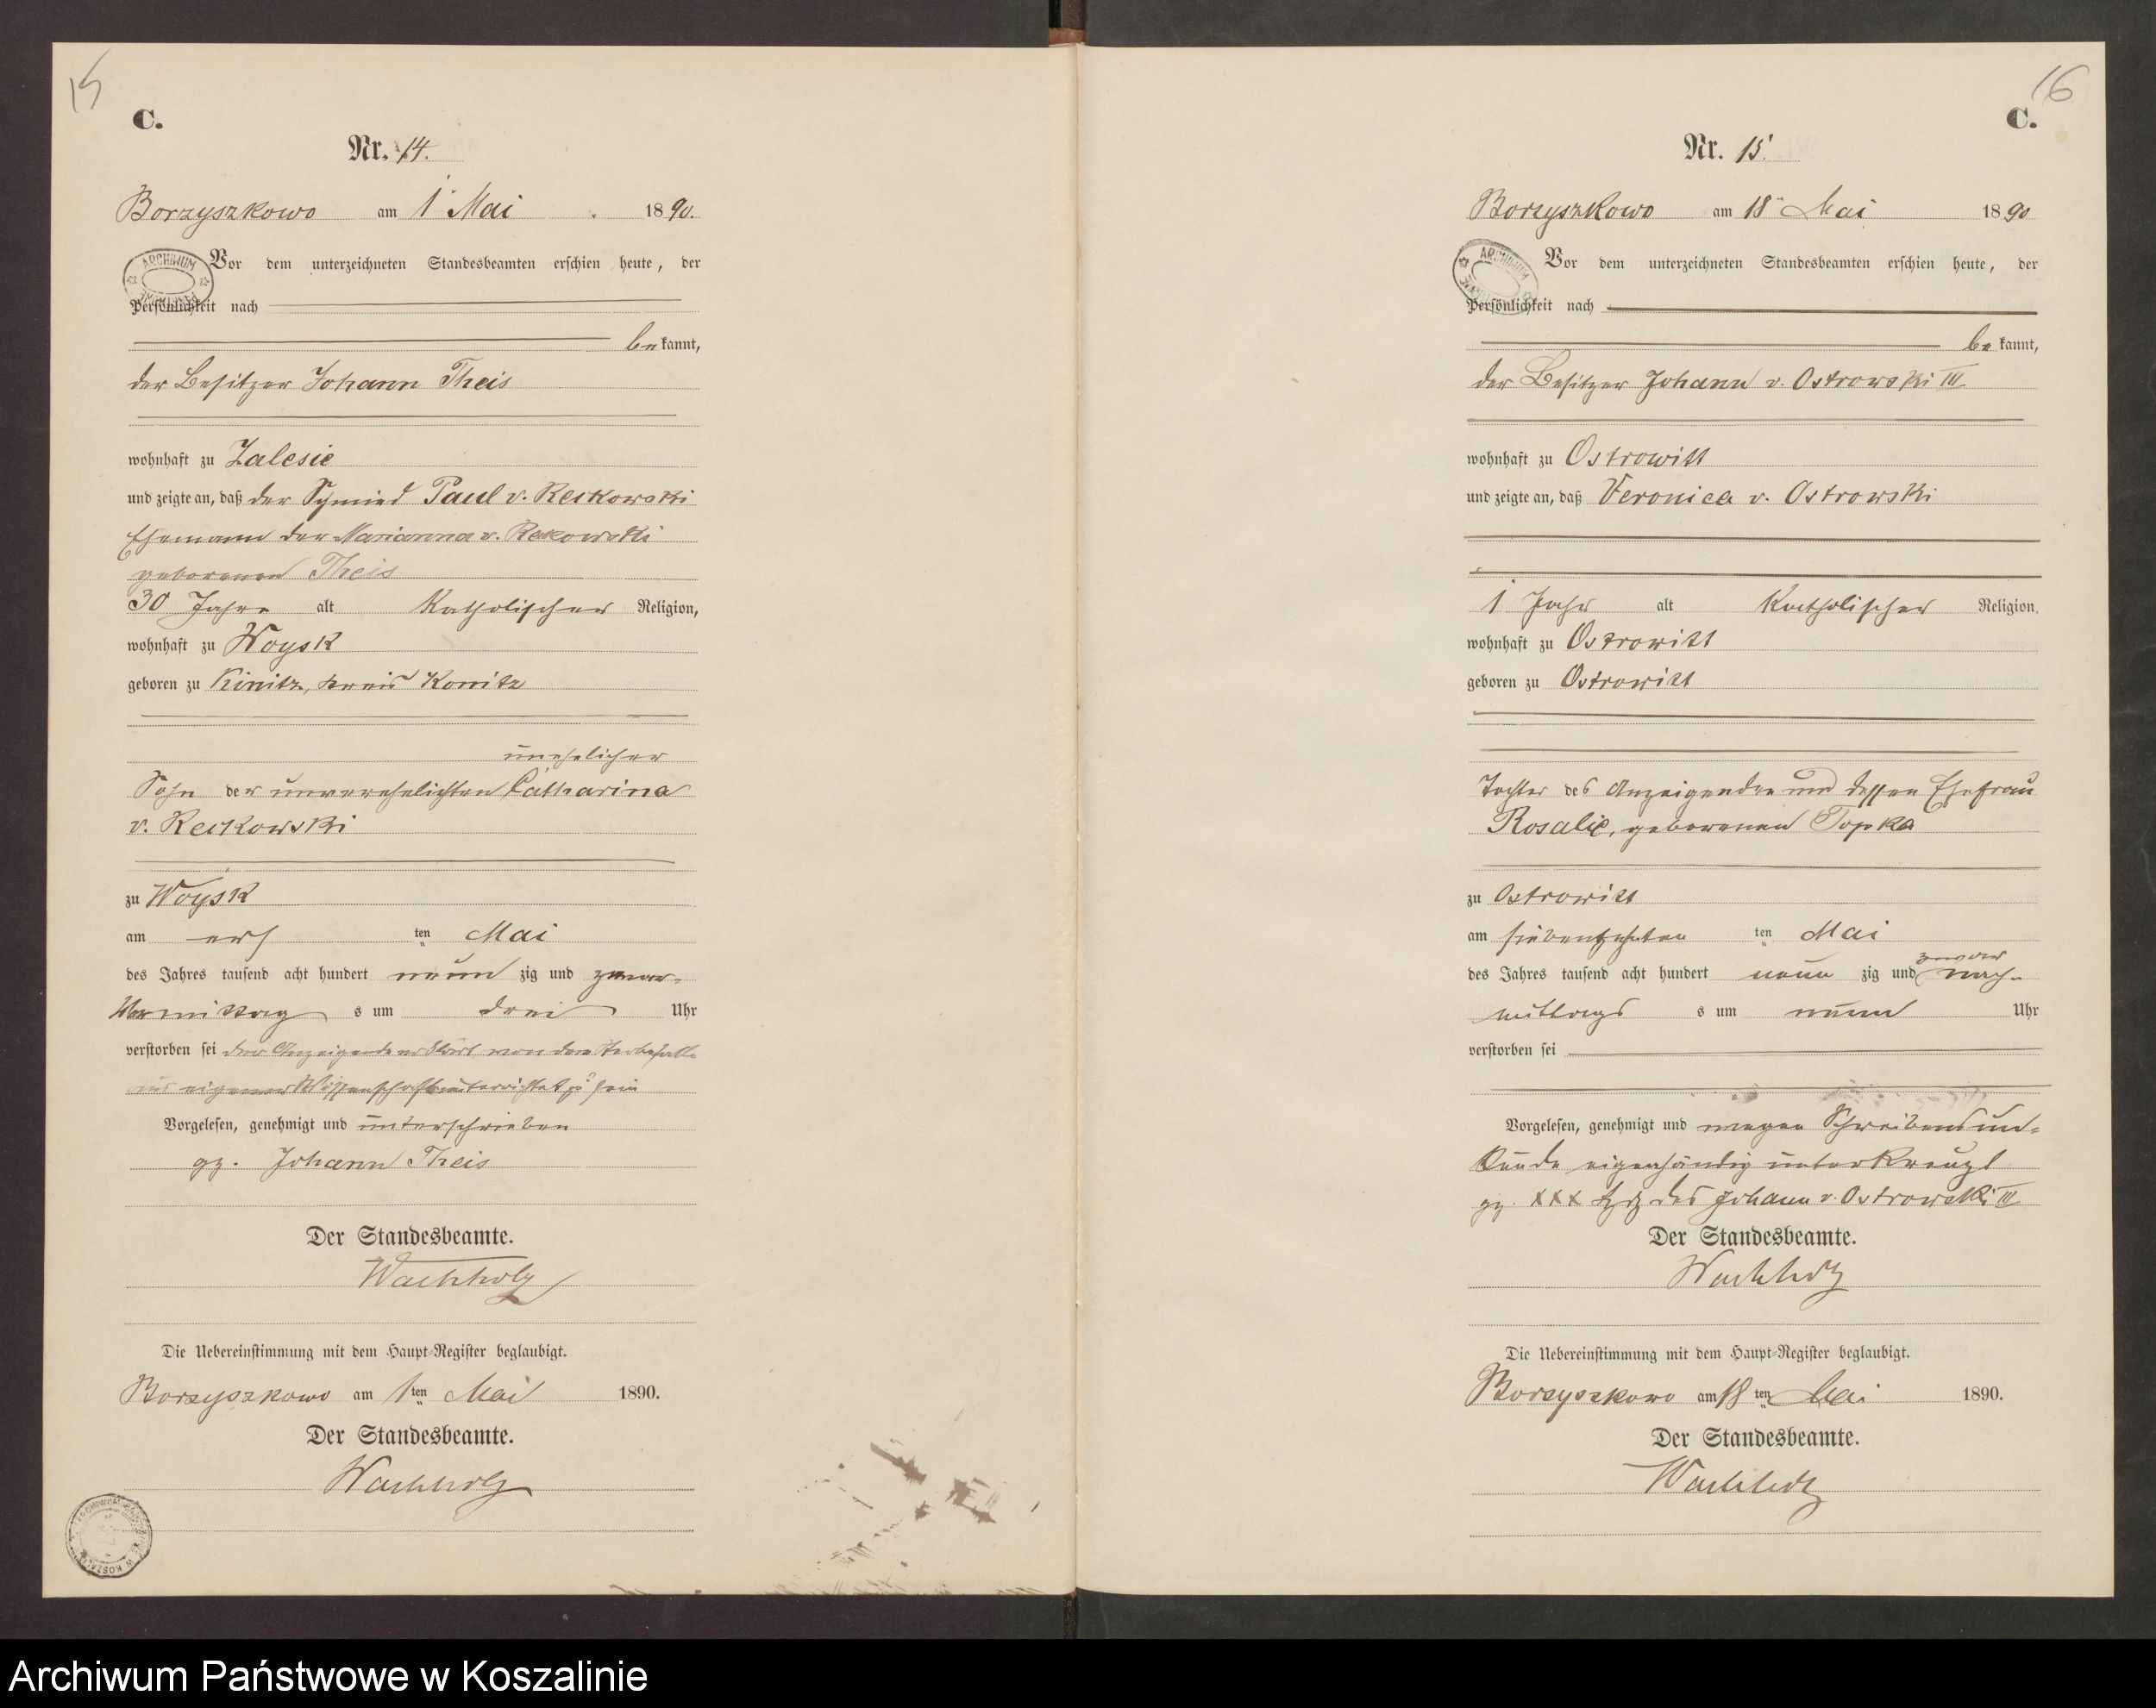 15
C.
Nr. 14.
Borzyszkowo am 1 Mai 1890.
Vor dem unterzeichneten Standesbeamten erschien heute, der
Persönlichkeit nach
bekannt,
der Besitzer Johann Theis
wohnhaft zu Zalesie
und zeigte an, daß der Schmied Paul v. Reckowski
Ehemann der Marianna v. Rekowski
geborenen Theis
30 Jahre alt Katholischer Religion,
wohnhaft zu Woysk
geboren zu Kinitz, Kreis Konitz
unehelicher
Sohn der unverehelichten Catharina
v. Reckowski
zu Woysk
am ersten Mai
des Jahres tausend acht hundert neunzig und zwar
Vormittags um drei Uhr
verstorben sei der Anzeigende erklärt von dem Sterbefalle
aus eigener Wissenschaft unterrichtet zu sein
Vorgelesen, genehmigt und unterschrieben
gz. Johann Theis
Der Standesbeamte.
Wachholz
Die Uebereinstimmung mit dem Haupt-Register beglaubigt.
Borzyszkowo am 1ten Mai 1890.
Der Standesbeamte.
Wachholz
ARCHIWUM
16
C.
Nr. 15.
Borzyszkowo am 18 Mai 1890
Vor dem unterzeichneten Standesbeamten erschien heute, der
Persönlichkeit nach
bekannt,
der Besitzer Johann v. Ostrowski III
wohnhaft zu Ostrowitt
und zeigte an, daß Veronica v. Ostrowski
1 Jahr alt Katholischer Religion,
wohnhaft zu Ostrowitt
geboren zu Ostrowitt
Tochter des Anzeigenden und dessen Ehefrau
Rosalie, geborenen Topka
zu Ostrowitt
am siebenzehnten ten Mai
des Jahres tausend acht hundert neunzig und zwar nach-
mittags um neun Uhr
verstorben sei
Vorgelesen, genehmigt und wegen Schreibensun-
kunde eigenhändig unterkreuzt
gz. XXX Hdz des Johann v. Ostrowski III
Der Standesbeamte.
Wachholz
Die Uebereinstimmung mit dem Haupt-Register beglaubigt.
Borzyszkowo am 18ten Mai 1890.
Der Standesbeamte.
Wachholz
ARCHIWUM
Archiwum Państwowe w Koszalinie